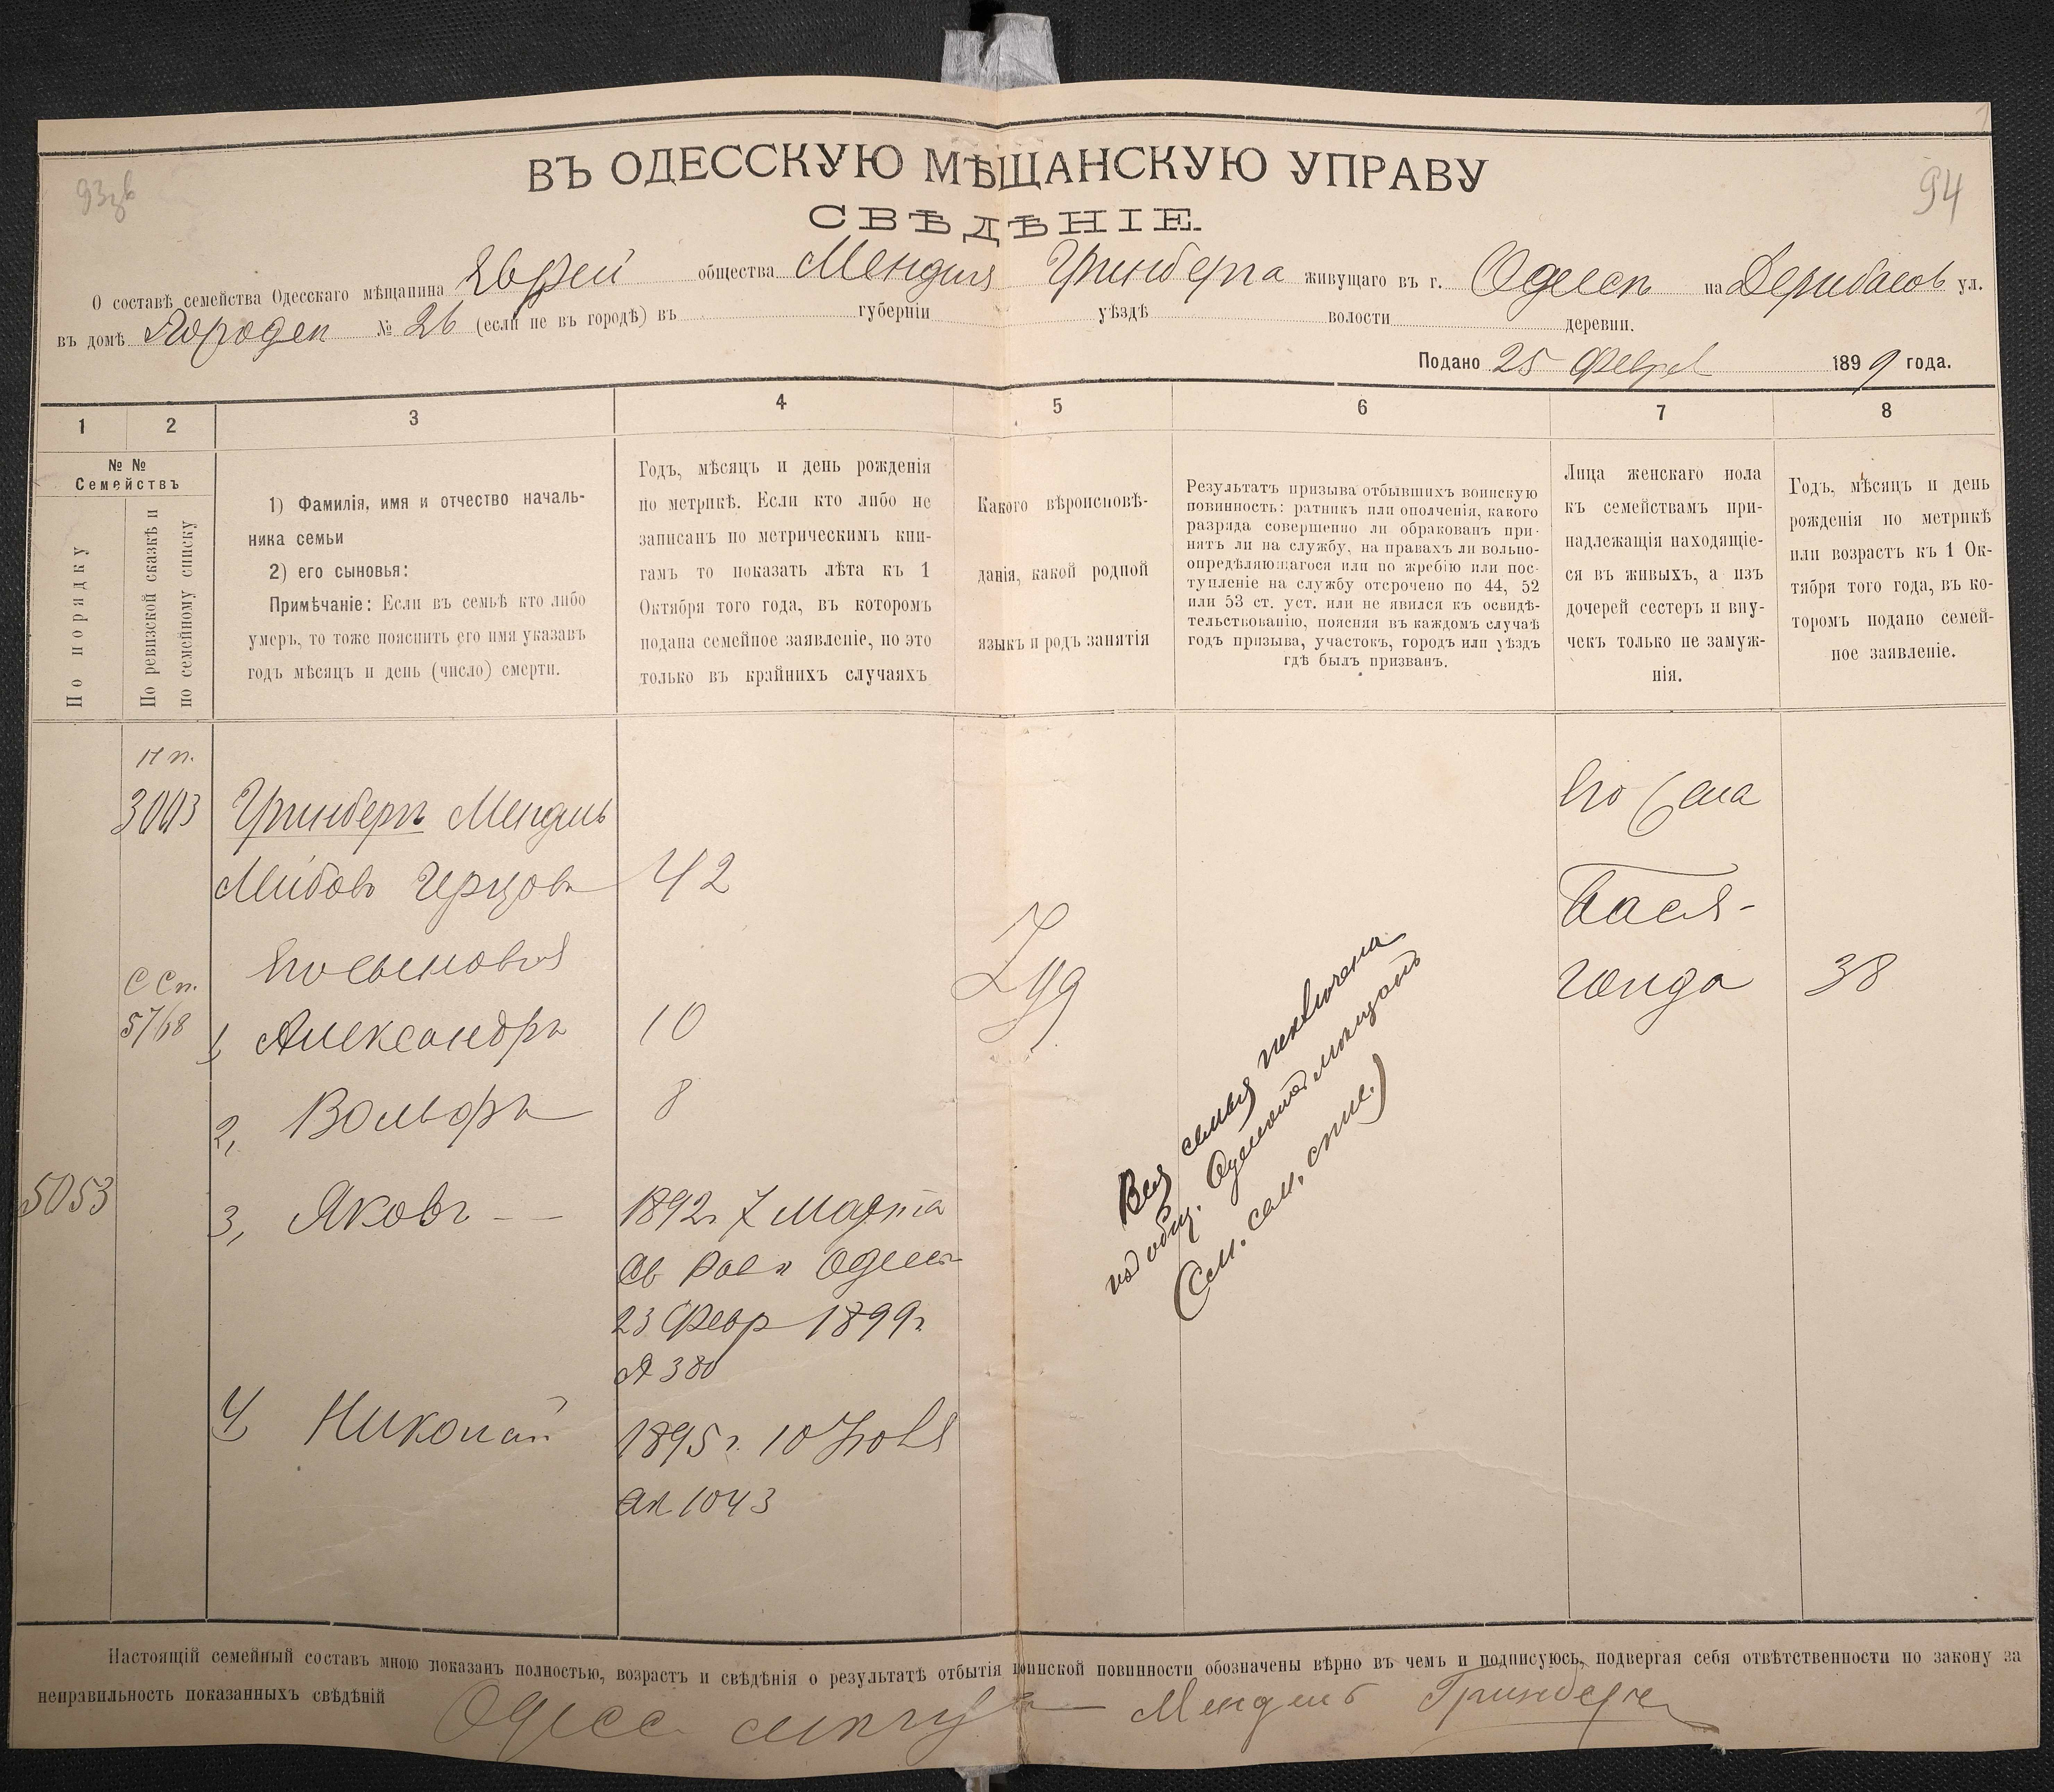 94
ВЪ ОДЕССКУЮ МѢЩАНСКУЮ УПРАВУ
СВѢДѢНІЕ.
О составѣ семейства Одесскаго мѣщанина Еврей общества Менделя Гринберга живущаго въ г. Одессѣ на Дерибасов ул.
въ домѣ № 26 (если не въ городѣ) въ губерніи уѣздѣ волости деревни.
Подано 25 Феврал 1899 года.
1 2 3 4 5 6 7 8
№ №
Семействъ
По порядку
По ревизской сказкѣ и
по семейному списку
1) Фамилія, имя и отчество началь-
ника семьи
2) его сыновья:
Примѣчаніе: Если въ семьѣ кто либо
умеръ, то тоже пояснить его имя указавъ
годъ мѣсяцъ и день (число) смерти.
Годъ, мѣсяцъ и день рожденія
по метрикѣ. Если кто либо не
записанъ по метрическимъ кни-
гамъ то показать лѣта къ 1
Октября того года, въ которомъ
подана семейное заявленіе, но это
только въ крайнихъ случаяхъ
Какого вѣроисповѣ-
данія, какой родной
языкъ и родъ занятія
Результатъ призыва отбывшихъ воинскую
повинность: ратникъ или ополченія, какого
разряда совершенно ли обракованъ при-
нятъ ли на службу, на правахъ ли вольно-
опредѣляющагося или по жребію или пос-
тупленіе на службу отсрочено по 44, 52
или 53 ст. уст. или не явился къ освидѣ-
тельствованію, поясняя въ каждомъ случаѣ
годъ призыва, участокъ, городъ или уѣздъ
гдѣ былъ призванъ.
Лица женскаго пола
къ семействамъ при-
надлежащія находящіе-
ся въ живыхъ, а изъ
дочерей сестеръ и вну-
чекъ только не замуж-
нія.
Годъ, мѣсяцъ и день
рожденія по метрикѣ
или возрастъ къ 1 Ок-
тября того года, въ ко-
торомъ подано семей-
ное заявленіе.
Н п.
3003 Гринбергъ Мендель
Лейбовъ Герцовъ 42
Его сыновья
С Сп.
57/68 1, Александръ 10
2, Вольфъ 8
5053 3, Яковъ 1892 г. 7 Марта
Св Одесс
23 Февр 1899 г.
№ 380
4, Николай 1895 г. 10
1043
Іуд
Вся семья исключена
из общ. Одесскаго мѣщанъ
(См. сем. спис.)
Его жена
Бася-
Генда 38
Настоящій семейный составъ мною показанъ полностью, возрастъ и свѣдѣнія о результатѣ отбытія воинской повинности обозначены вѣрно въ чемъ и подписуюсь, подвергая себя отвѣтственности по закону за
неправильность показанныхъ свѣдѣній Одесс Мендель Гринбергъ